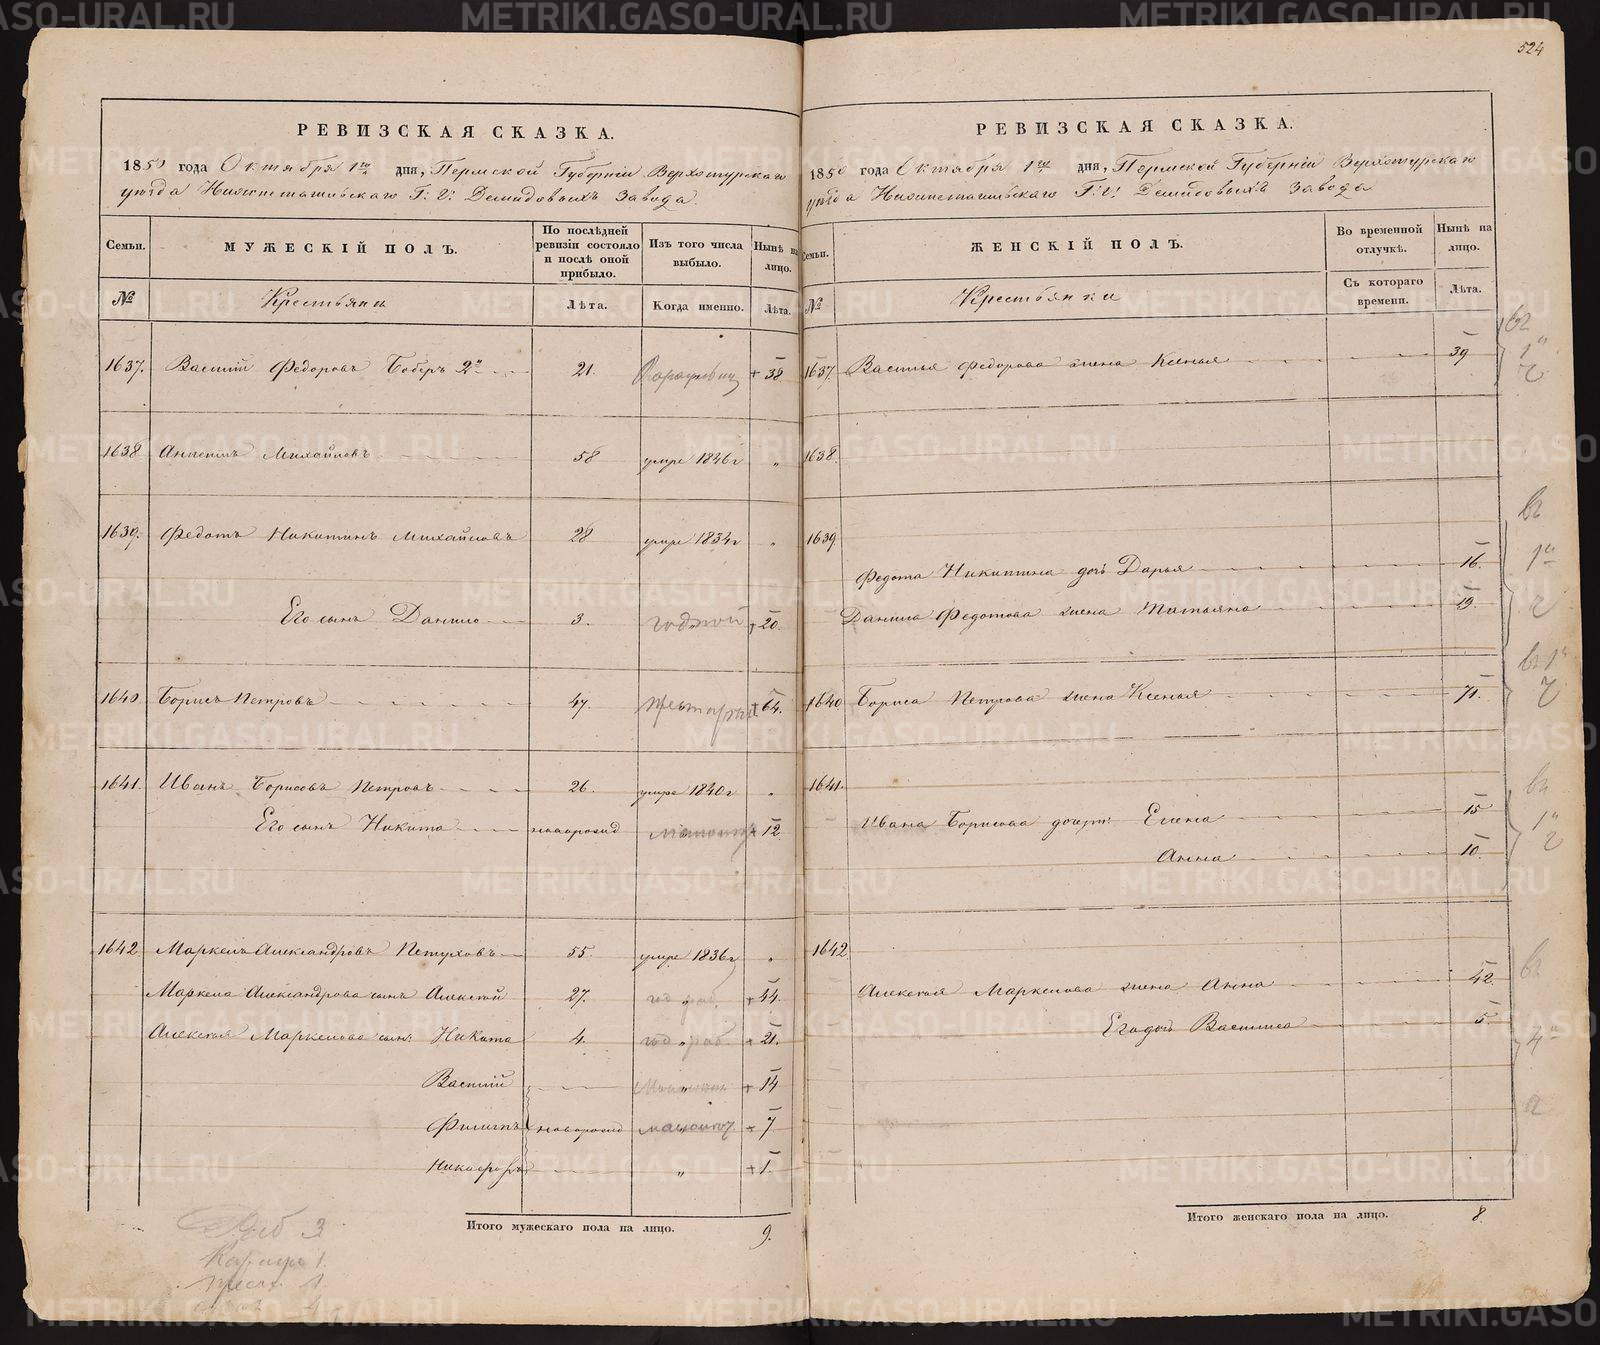 524
РЕВИЗСКАЯ СКАЗКА.
1850 года Октября 1го дня, Пермской Губерніи Верхотурскаго
уѣзда Нижнетагильскаго Г: Г: Демидовыхъ завода.
Семьи. МУЖЕСКІЙ ПОЛЪ. По послѣдней ревизіи состояло и послѣ оной прибыло. Изъ того числа выбыло. Нынѣ на лицо.
№ Крестьяне Лѣта. Когда именно. Лѣта.
1637. Василій Федоровъ Боберъ 2й 21. + 38
1638 Михайловъ 58 умре 1846г „
1639. Федотъ Никитинъ Михайловъ 28 умре 1834г „
Его сынъ Данило 3. годной + 20.
1640. Борисъ Петровъ 47. + 64.
1641. Иванъ Борисовъ Петровъ 26. умре 1840г „
Его сынъ Никита новорожд + 12
1642 Маркелъ Александровъ Петуховъ 55. умре 1836г „
Маркела Александрова сынъ Алексѣй 27. год „ раб. + 44.
Алексѣя Маркелова сынъ Никита 4. год „ раб. + 21.
Василій „ + 14
Филипъ новорожд малолет. + 7
Никифоръ „ + 1.
Итого мужескаго пола на лицо. 9.
3
1.
1
РЕВИЗСКАЯ СКАЗКА.
1850 года Октября 1го дня, Пермской Губерніи Верхотурскаго
уѣзда Нижнетагильскаго Г: Г: Демидовыхъ завода
Семьи. ЖЕНСКІЙ ПОЛЪ. Во временной отлучкѣ. Нынѣ на лицо.
№ Крестьянки Съ котораго времени. Лѣта.
1637 Василья Федорова жена Ксенья 39
1638.
1639
Федота Никитина дочь Дарья 16.
Данила Федотова жена Татьяна 19.
1640 Бориса Петрова жена Ксенья 71.
1641.
Ивана Борисова дочери: Елена 15
Анна 10.
1642
Алексѣя Маркелова жена Анна 42.
Его дочь Василиса 5.
Итого женскаго пола на лицо. 8.
METRIKI.GASO-URAL.RU